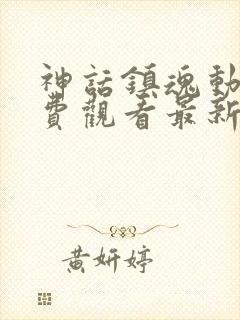 神話鎮魂動
費觀看最新
黃妍婷